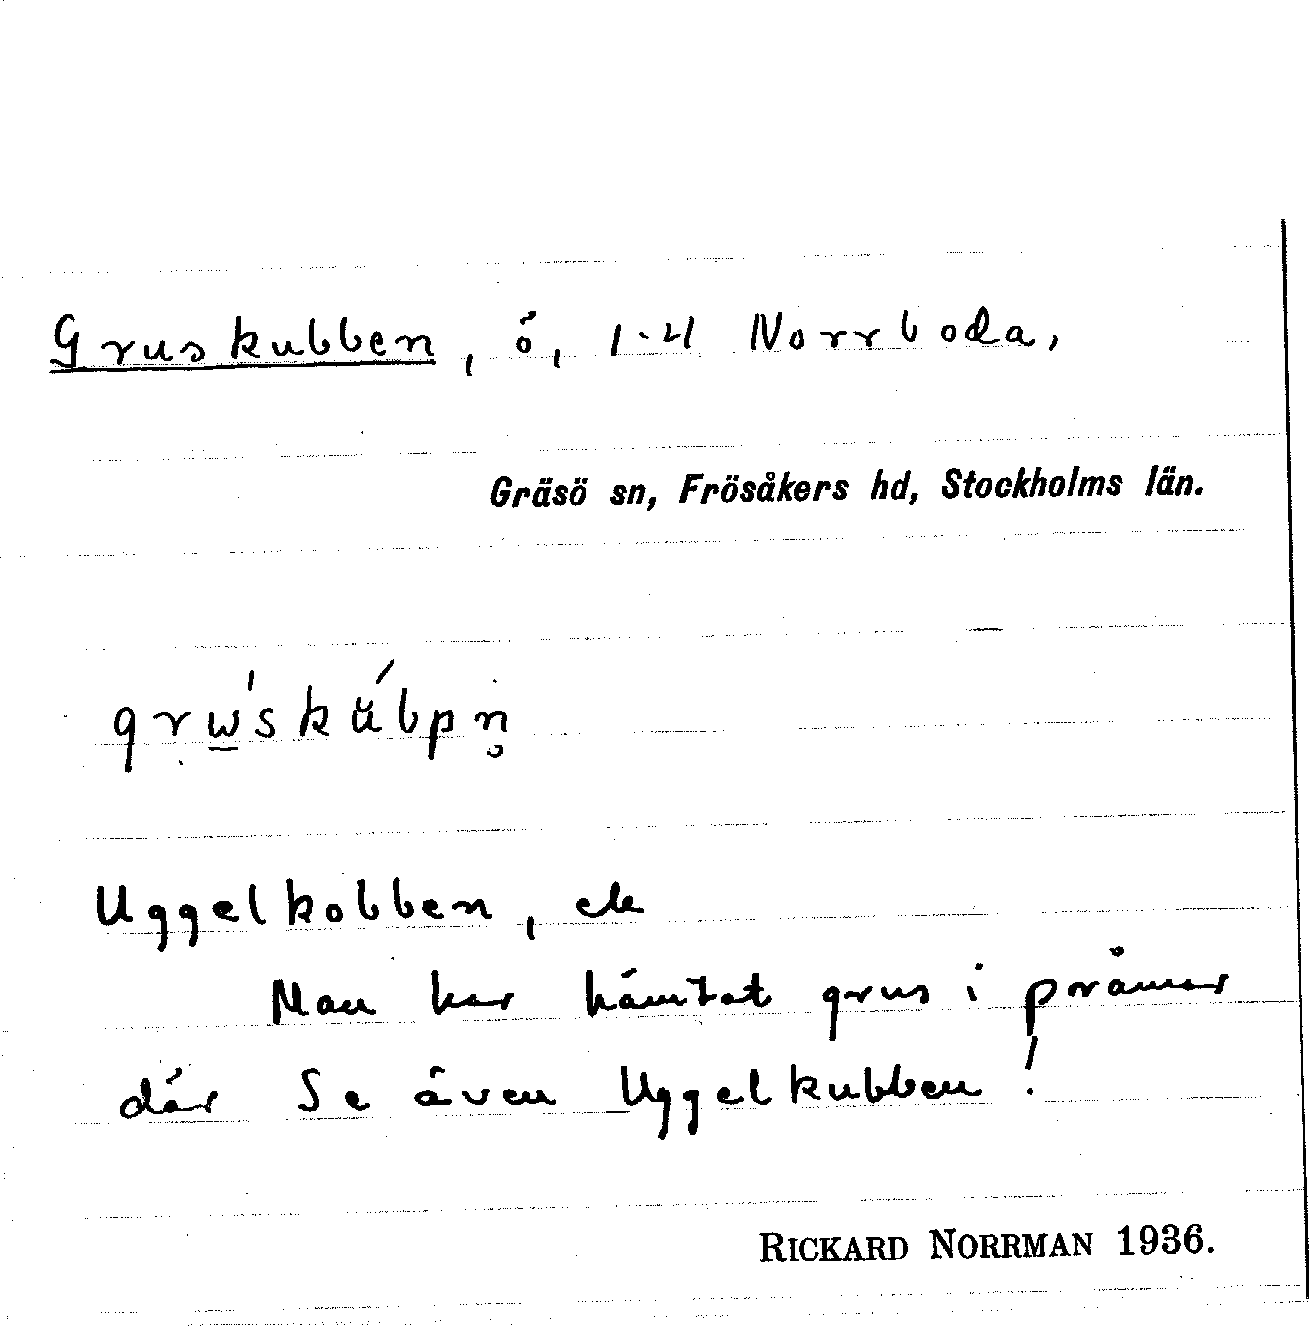 Gruskubben, ö, 1.4 Norrboda,
Gräsö sn, Frösåkers hd, Stockholms län.
Uggelkobben, ek
Man har hämtat grus i pråmar
där Se även Uggelkubben!
RICKARD NORRMAN 1936.